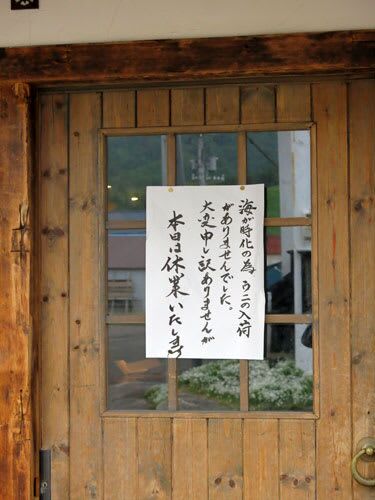 海が時化の為 うにの入荷
がありませんでした。
大変申し訳ありませんが
本日は休業いたします